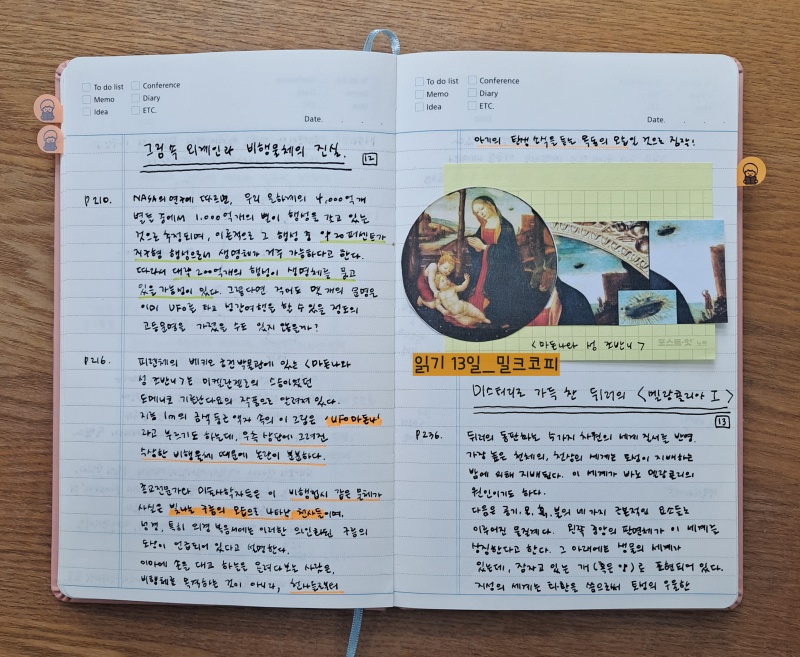 To do list
Conference
Memo
Diary
Idea
ETC.
Date.
그림 속 외계인과 비행물체의 진실.
12
P210.
NASA의 연구에 따르면, 우리 은하계의 4,000억개
별들 중에서 1,000억개의 별이 행성을 갖고 있는
것으로 측정되며, 이론적으로 그 행성 중 약 20퍼센트가
지구형 행성으로서 생명체가 거주 가능하다고 한다.
따라서 대략 200억개의 행성이 생명체를 품고
있을 가능성이 있다. 그렇다면 적어도 몇 개의 문명은
이미 UFO를 타고 성간여행을 할 수 있을 정도의
고등문명을 가졌을 수도 있지 않을까?
P216.
피렌체의 베키오 궁전 박물관에 있는 <마돈나와
성 조반니>는 미켈란젤로의 스승이었던
도메니코 기를란다요의 작품으로 알려져 있다.
지름 1m의 금색 둥근 액자 속의 이 그림은 'UFO 마돈나'
라고 부르기도 하는데, 우측 상단에 그려진
수상한 비행물체 때문에 논란이 분분하다.
종교전문가와 미술사학자들은 이 비행접시 같은 물체가
사실은 빛나는 구름의 모습으로 나타난 천사들이며,
성경, 특히 외경 복음서에는 이러한 의인화된 구름의
도상이 언급되어 있다고 설명한다.
이마에 손을 대고 하늘을 올려다보는 사람은,
비행체를 목격하는 것이 아니라, 천사들로부터
To do list
Conference
Memo
Diary
Idea
ETC.
Date.
아기의 탄생 소식을 듣는 목동의 모습인 것으로 짐작!
<마돈나와 성 조반니>
포스트-잇 노트
읽기 13일_밀크코피
미스터리로 가득 찬 뒤러의 <멜랑콜리아 I>
13
P236.
뒤러의 동판화는 4가지 차원의 세계 질서를 반영.
가장 높은 천체의, 천상의 세계는 토성이 지배하는
밤에 의해 지배된다. 이 세계가 바로 멜랑콜리의
원인이기도 하다.
다음은 공기, 물, 흙, 불의 네 가지 근본적인 요소들로
이루어진 물질계다. 왼쪽 중앙의 다면체가 이 세계를
상징한다고 한다. 그 아래에는 생물의 세계가
있는데, 잠자고 있는 개 (혹은 양)로 표현되어 있다.
지성의 세계는 화환을 씀으로써 토성의 우울한